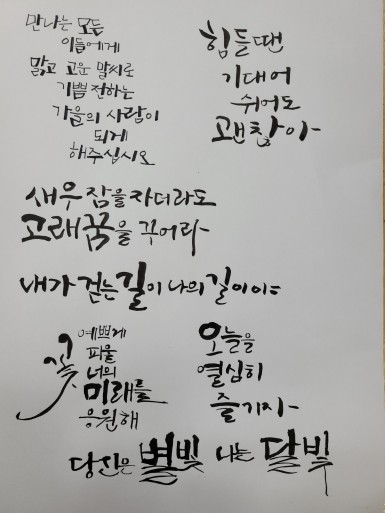 만나는 모든
이들에게
맑고 고운 말씨로
기쁨 전하는
가을의 사람이
되게
해주십시오
힘들땐
기대어
쉬어도
괜찮아
새우잠을 자더라도
고래꿈을 꾸어라
내가 걷는 길이 나의 길이야
꽃
예쁘게
피울
너의
미래를
응원해
오늘을
열심히
즐기자
당신은 별빛 나는 달빛